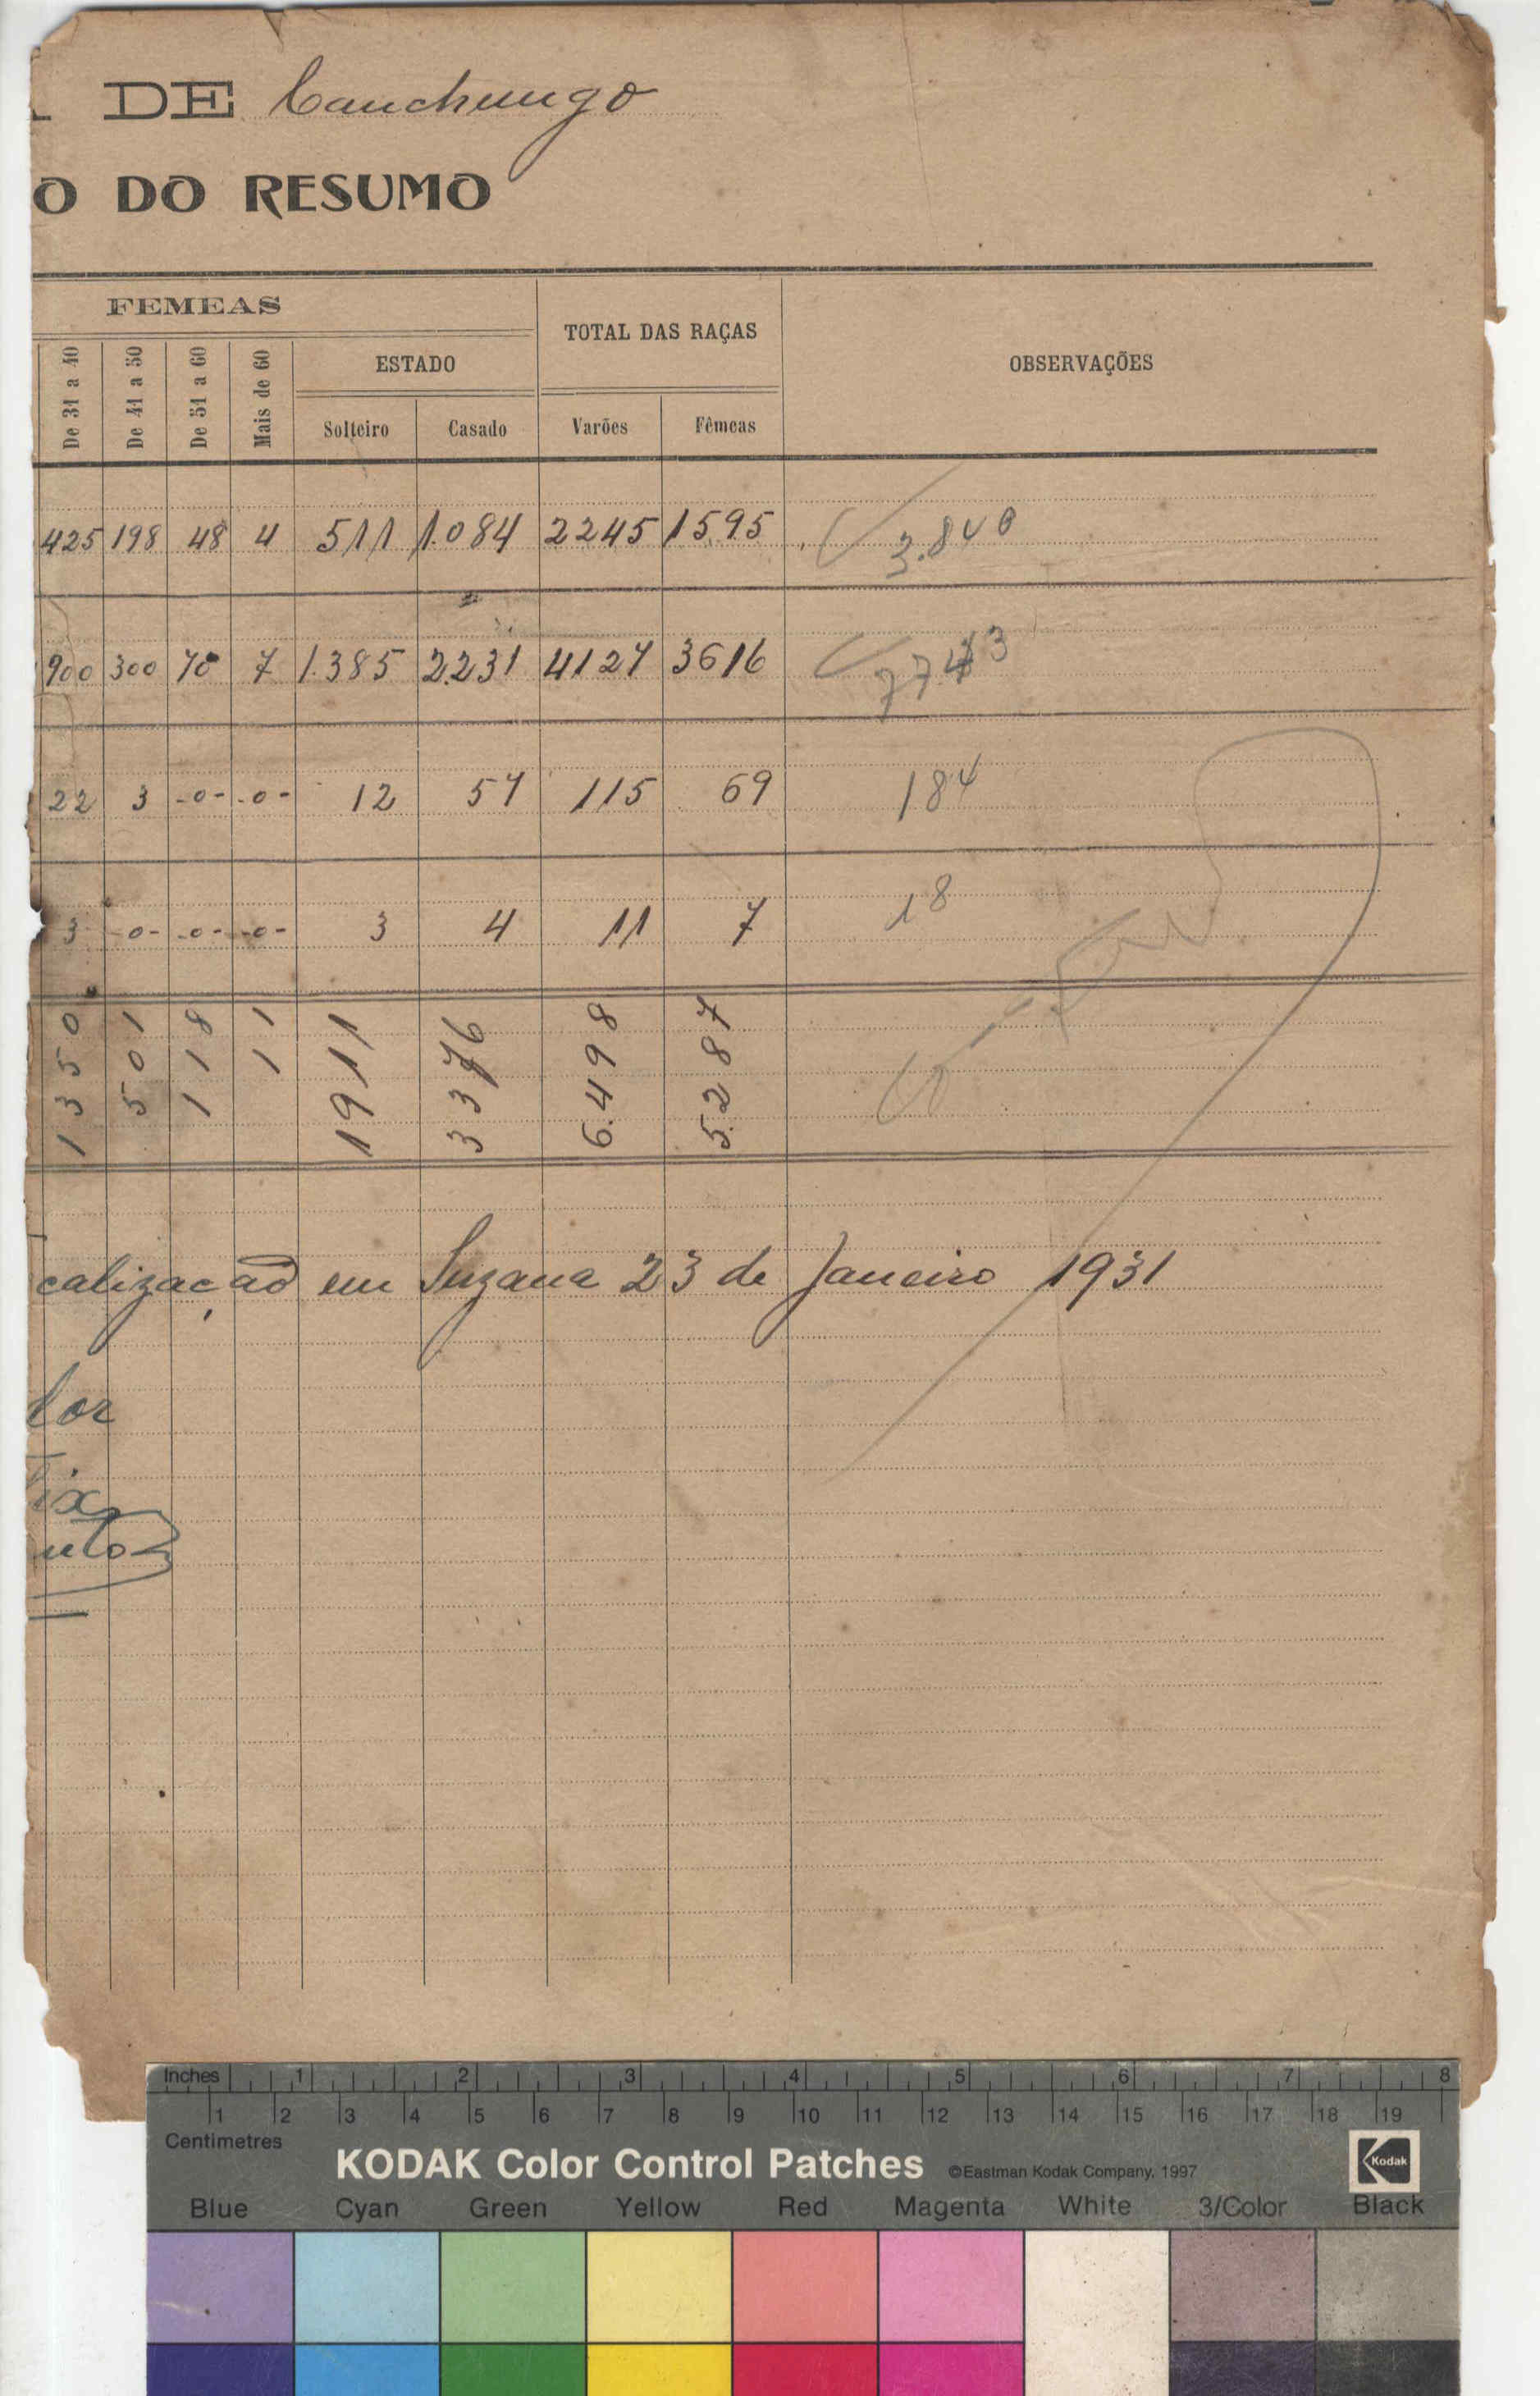 DE Canchungo
O DO RESUMO
FEMEAS
TOTAL DAS RAÇAS
OBSERVAÇÕES
ESTADO
De 31 a 40 De 41 a 50 De 51 a 60 Mais de 60 Solteiro Casado Varões Fêmeas
425 198 48 4 511 1.084 2245 1595 3.840
900 300 70 7 1.385 2.231 4127 3616 7743
22 3 -0- -0- 12 57 115 69 184
3 -0- -0- -0- 3 4 11 7 18
1350 501 118 11 1911 3376 6.498 5.287
calização em Suzana 23 de Janeiro 1931
dor
ix
nto
Inches 1 2 3 4 5 6 7 8
1 2 3 4 5 6 7 8 9 10 11 12 13 14 15 16 17 18 19
Centimetres
KODAK Color Control Patches ©Eastman Kodak Company, 1997 Kodak
Blue Cyan Green Yellow Red Magenta White 3/Color Black